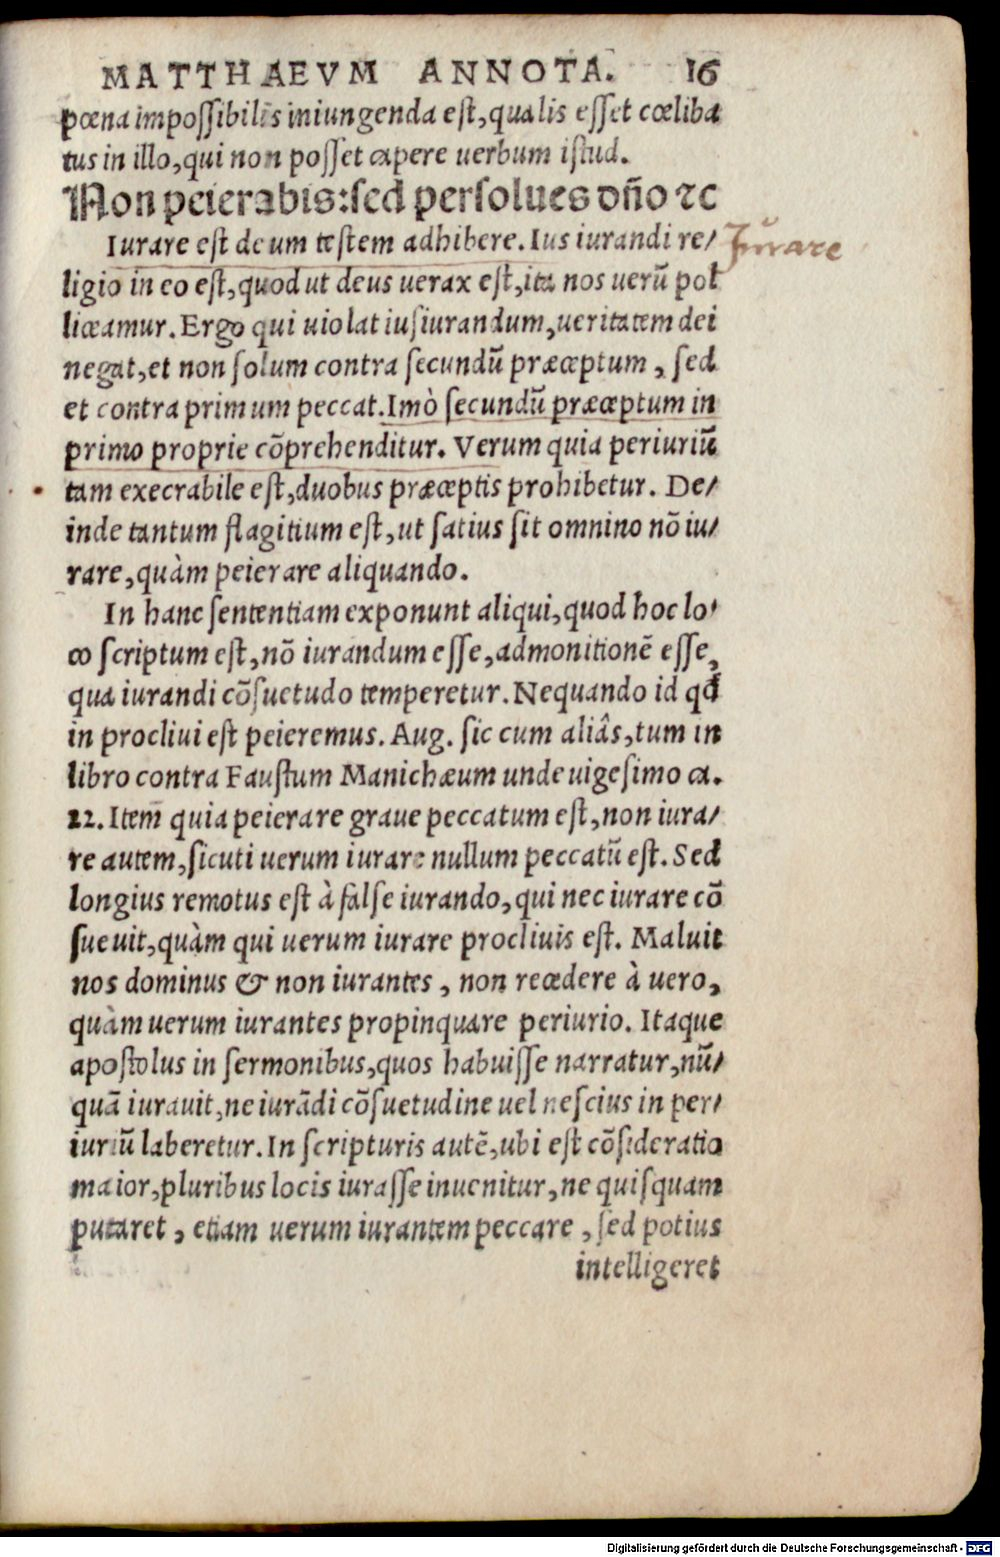 MATTHAEVM ANNOTA. 16
pœna impoſſibilis iniungenda eſt, qualis eſſet cœliba
tus in illo, qui non poſſet capere uerbum iſtud.
Non peierabis: ſed perſolues dño ⁊c
Iurare eſt deum teſtem adhibere. Ius iurandi re/
Iurare
ligio in eo eſt, quod ut deus uerax eſt, ita nos uerũ pol
liceamur. Ergo qui uiolat iuſiurandum, ueritatem dei
negat, et non ſolum contra ſecundũ præceptum, ſed
et contra primum peccat. Imò ſecundũ præceptum in
primo proprie cõprehenditur. Verum quia periuriũ
tam execrabile eſt, duobus præceptis prohibetur. De/
inde tantum flagitium eſt, ut ſatius ſit omnino nõ iu/
rare, quàm peierare aliquando.
In hanc ſententiam exponunt aliqui, quod hoc lo/
co ſcriptum eſt, nõ iurandum eſſe, admonitionẽ eſſe,
qua iurandi cõſuetudo temperetur. Nequando id qd
in procliui eſt peieremus. Aug. ſic cum aliâs, tum in
libro contra Fauſtum Manichæum undeuigeſimo ca.
22. Item quia peierare graue peccatum eſt, non iura/
re autem, ſicuti uerum iurare nullum peccatũ eſt. Sed
longius remotus eſt à falſe iurando, qui nec iurare cõ
ſueuit, quàm qui uerum iurare procliuis eſt. Maluit
nos dominus & non iurantes, non recedere à uero,
quàm uerum iurantes propinquare periurio. Itaque
apoſtolus in ſermonibus, quos habuiſſe narratur, nũ/
quã iurauit, ne iurãdi cõſuetudine uel neſcius in per/
iuriũ laberetur. In ſcripturis autẽ, ubi eſt cõſideratio
maior, pluribus locis iuraſſe inuenitur, ne quiſquam
putaret, etiam uerum iurantem peccare, ſed potius
intelligeret
Digitalisierung gefördert durch die Deutsche Forschungsgemeinschaft - DFG